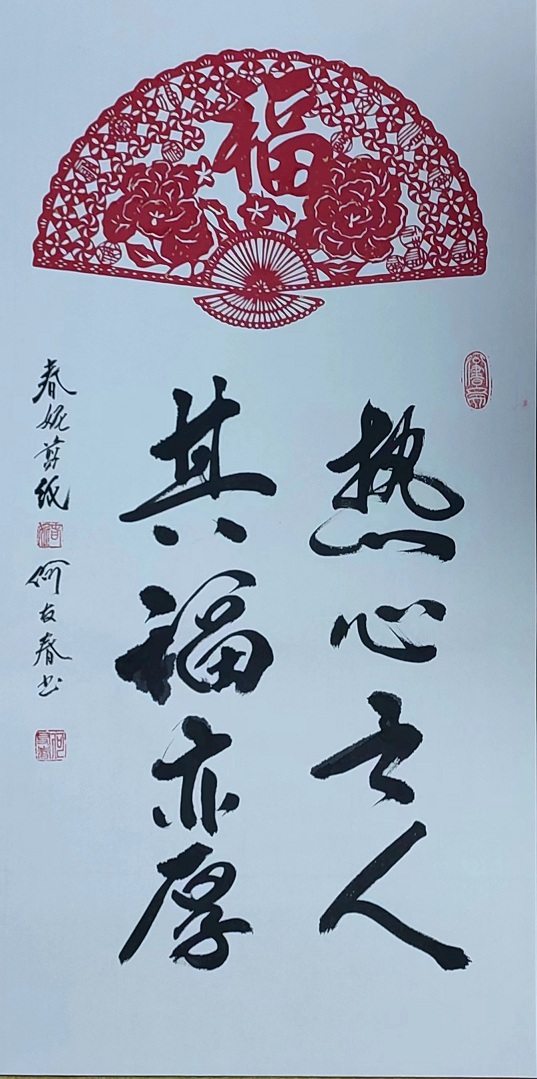 福
热心之人
其福亦厚
春妮剪纸
何友春书